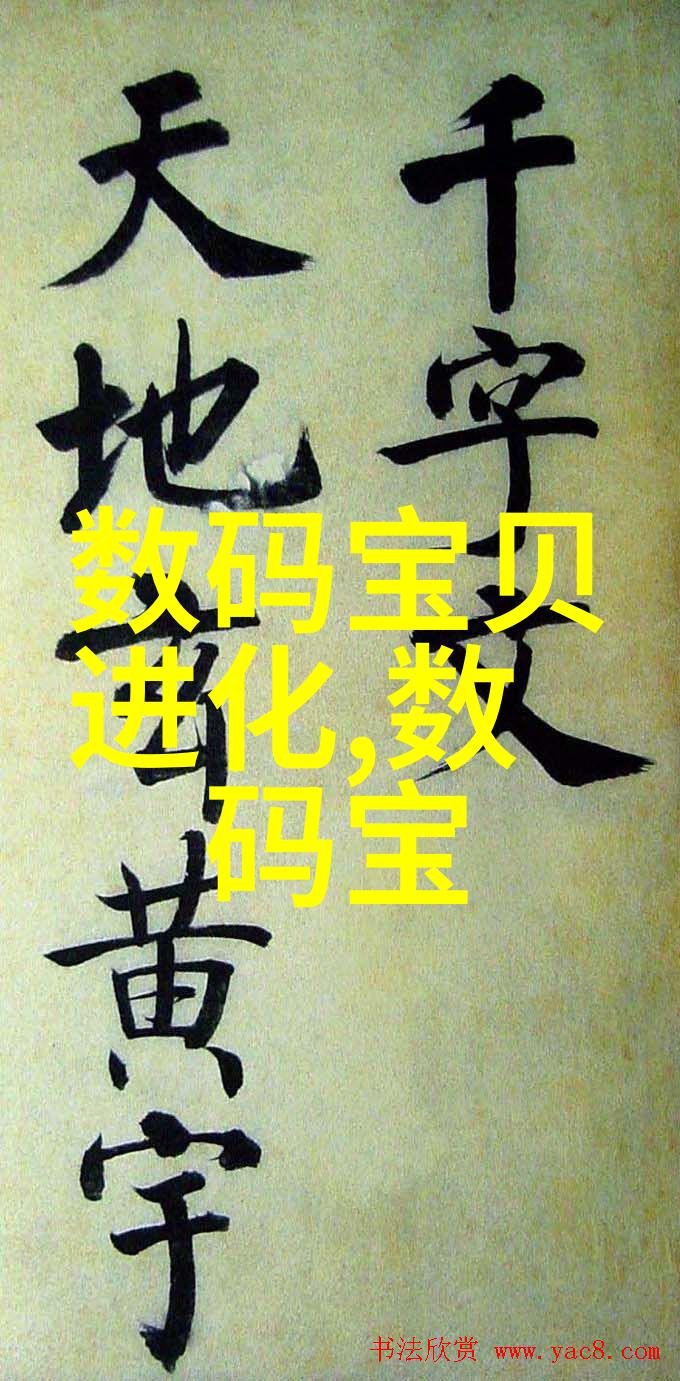 千字文
天地黄宇
数码宝贝
进化,数
码宝
书法欣赏 www.yac8.com